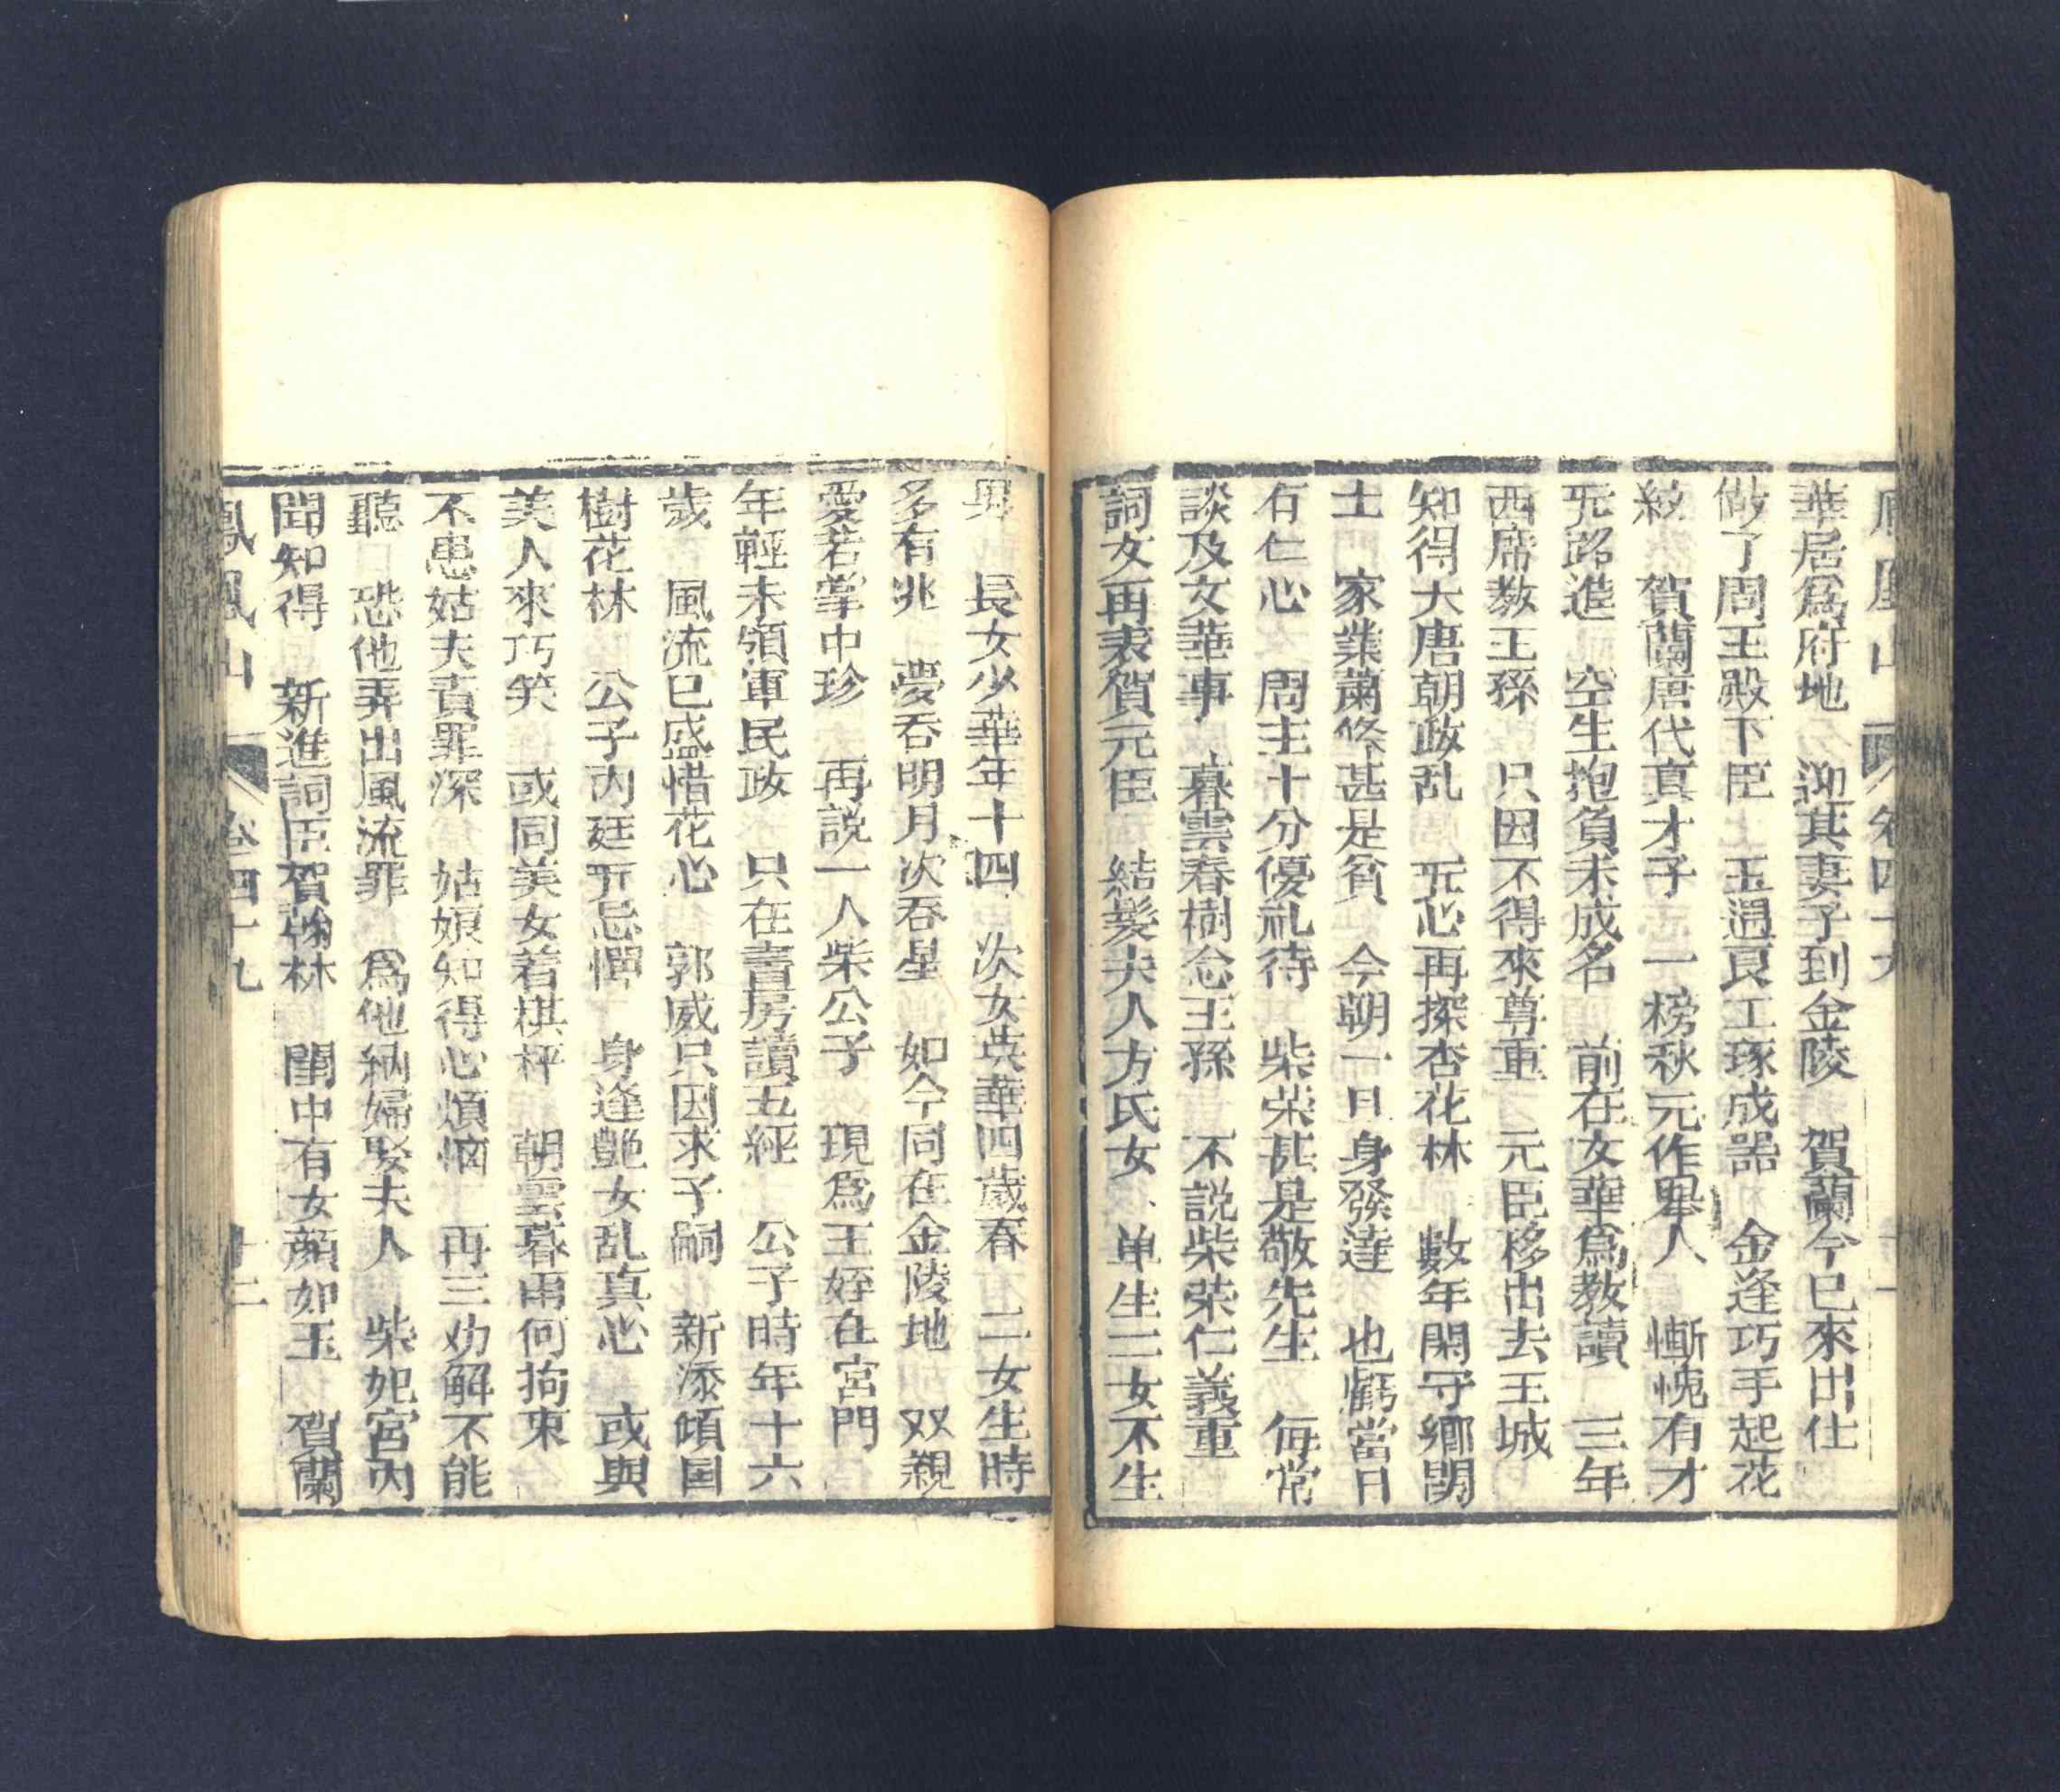 鳳凰山 卷四十九
華居爲府地 迎其妻子到金陵 賀蘭今已來出仕
做了周王殿下臣 玉遇良工琢成器 金逢巧手起花
紋 賀蘭唐代真才子 一榜秋元作舉人 慚愧有才
无路進 空生抱負未成名 前在文華爲教讀 三年
西席教王孫 只因不得來尊重 元臣移出去王城
知得大唐朝政乱 无心再探杏花林 數年閑守鄉間
士 家業蕭條甚是貧 今朝一旦身發達 也虧當日
有仁心 周主十分優礼待 柴荣甚是敬先生 每常
談及文華事 暮雲春樹念王孫 不説柴荣仁義重
詞文再表賀元臣 結髮夫人方氏女 单生二女不生
男 長女少華年十四 次女英華四歲春 二女生時
多有兆 夢吞明月次吞星 如今同在金陵地 双親
愛若掌中珍 再説一人柴公子 現爲王姪在宮門
年輕未領軍民政 只在書房讀五經 公子時年十六
歲 風流已盛惜花心 郭威只因求子嗣 新添傾国
樹花林 公子内廷无忌憚 身逢艶女乱真心 或與
美人來巧笑 或同美女着棋枰 朝雲暮雨何拘束
不患姑夫責罪深 姑娘知得心煩惱 再三劝解不能
聽 恐他弄出風流罪 爲他納婦娶夫人 柴妃宮内
聞知得 新進詞臣賀翰林 閨中有女顔如玉 賀蘭
鳳凰山 卷四十九 十二